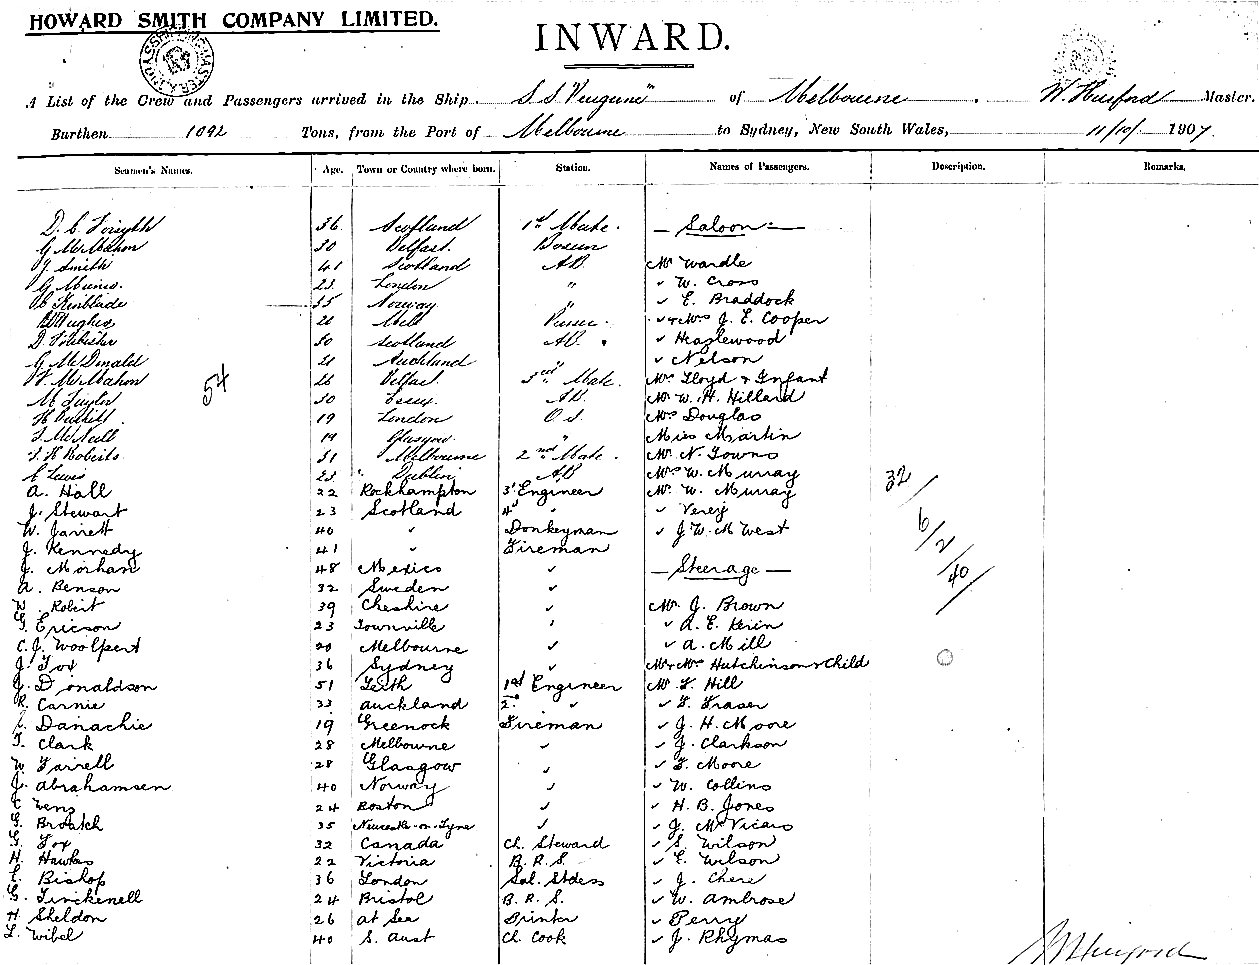 HOWARD SMITH COMPANY LIMITED.
INWARD.
A List of the Crew and Passengers arrived in the Ship S.S. of Melbourne. Master.
Burthen 1092 Tons, from the Port of Melbourne to Sydney, New South Wales, 11/10/1907.
Seamen's Names. Age. Town or Country where born. Station. Names of Passengers. Description. Remarks.
D. C. Forsyth 36 Scotland 1st Mate. Saloon
G McMahon 30 Belfast. Bosun
J Smith 41 Scotland AB Mr Wardle
G Munro. 23 London " ✓ W. Cross
35 Norway " ✓ E. Braddock
Hughes ✓ + Mrs J. E. Cooper
D. 30 Scotland AB. ✓ Heaglewood
G McDonald 21 Auckland " ✓ Nelson
McMahon 26 Belfast. 3rd Mate. Mrs Lloyd + Infant
54
M Taylor 30 AB. Mr W. H. Hillard
19 London O.S. Mrs Douglas
McNeill 19 Glasgow. " Miss Martin
Roberts 31 Melbourne 2nd Mate. Mr N. Towns
Lewis 23 Dublin AB Mrs W. Murray
A. Hall 22 Rockhampton 3rd Engineer Mr. W. Murray 32/
J. Stewart 23 Scotland 4th " ✓ Verey
W. Jarrett 40 " Donkeyman ✓ J. W. M West 6/2/
J. Kennedy 41 " Fireman
J. Morhan 48 Mexico ✓ Steerage 40/
A. Benson 32 Sweden ✓
W. Robert 39 Cheshire ✓ Mr. J. Brown
G. Ericson 23 Townville ' ✓ A. E. Kerin
C. J. Woolpert 20 Melbourne ✓ ✓ A. Mill
J. Fox 36 Sydney ✓ Mr + Mrs Hutchinson + Child
J. Donaldson 51 Leith 1st Engineer Mr F. Hill
R. Carnie 33 Auckland 2nd " ✓ F. Fraser
Danachie 19 Greenock Fireman ✓ J. H. Moore
T. Clark 28 Melbourne ✓ ✓ J. Clarkson
W Farrell 28 Glasgow ✓ ✓ F. Moore
J. Abrahamsen 40 Norway ✓ ✓ W. Collins
24 Boston ✓ ✓ H. B. Jones
G. Broatch 35 Newcastle-on-Tyne ✓ ✓ J. McVicars
G. Fox 32 Canada Ch. Steward ✓ S. Wilson
H. Hawkes 22 Victoria B. R. S. ✓ E. Wilson
Bishop 36 London Sal. Stdess ✓ J. Chere
Linckenell 24 Bristol B. R. S. ✓ W. Ambrose
H. Sheldon 26 At Sea Printer ✓ Perry
L. Wibel 40 S. Aust Ch. Cook ✓ J. Rhymas